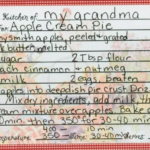 Kitchen of my grandma
for Apple Cream Pie
Smith apples, peeled + grated
butter melted
sugar 2 Tbsp flour
each cinnamon + nutmeg
milk 2 eggs, beaten
apples into deep dish pie crust. Driz
Mix dry ingredients, add milk, th
mixture over apples. Bake
min. then 350° for 30-40 min
400 10 min
Temperature 350 time 30-40 min